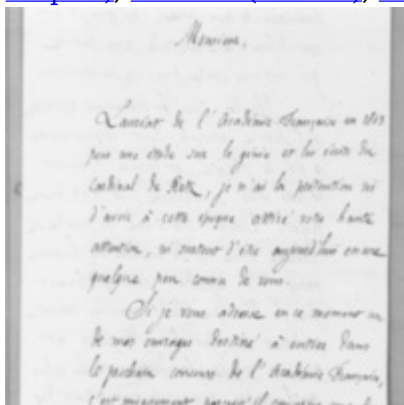 Monsieur,
Lauréat de l'Académie Française en 1863
pour une étude sur le génie et les écrits du
Cardinal de Retz, je n'ai la prétention ni
d'avoir à cette époque attiré votre haute
attention, ni surtout d'être aujourd'hui encore
quelque peu connu de vous.
Si je vous adresse en ce moment un
de mes ouvrages destiné à entrer dans
le prochain concours de l'Académie Française,
c'est uniquement parce qu'il